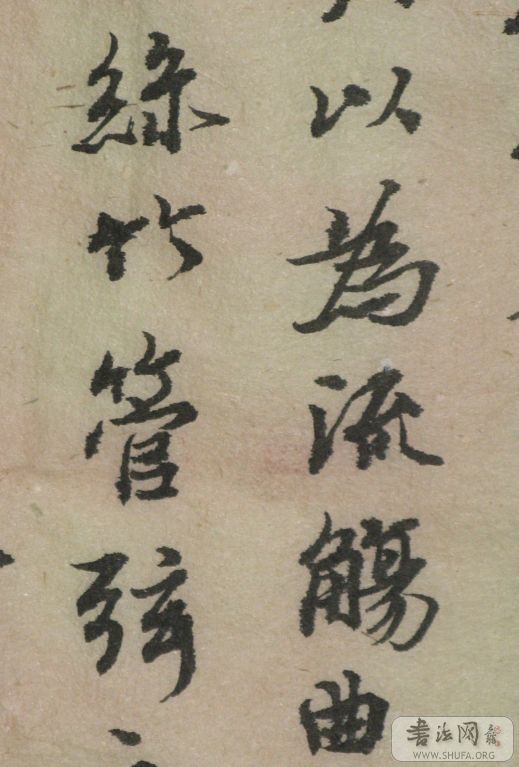 以為流觴曲
絲竹管弦
書法网
WWW.SHUFA.ORG